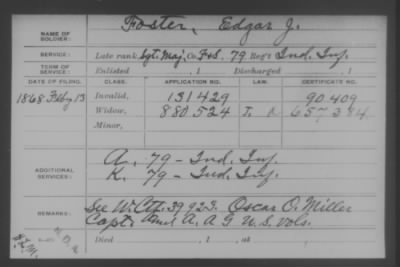 NAME OF SOLDIER: Foster, Edgar J.
SERVICE: Late rank Sgt. Maj. Co. F&S. 79 Reg't Ind. Inf.
TERM OF SERVICE: Enlisted , 1 Discharged , 1
DATE OF FILING. CLASS. APPLICATION NO. LAW. CERTIFICATE NO.
1868 Feby 13 Invalid, 131429 90.409
Widow, 880.524 657384
Minor,
ADDITIONAL SERVICES: A. 79 - Ind. Inf.
K. 79 - Ind. Inf.
REMARKS: See W. Ctf. 39923. Oscar O. Miller
Capt. A. A G U.S. Vols.
Died , 1 , at